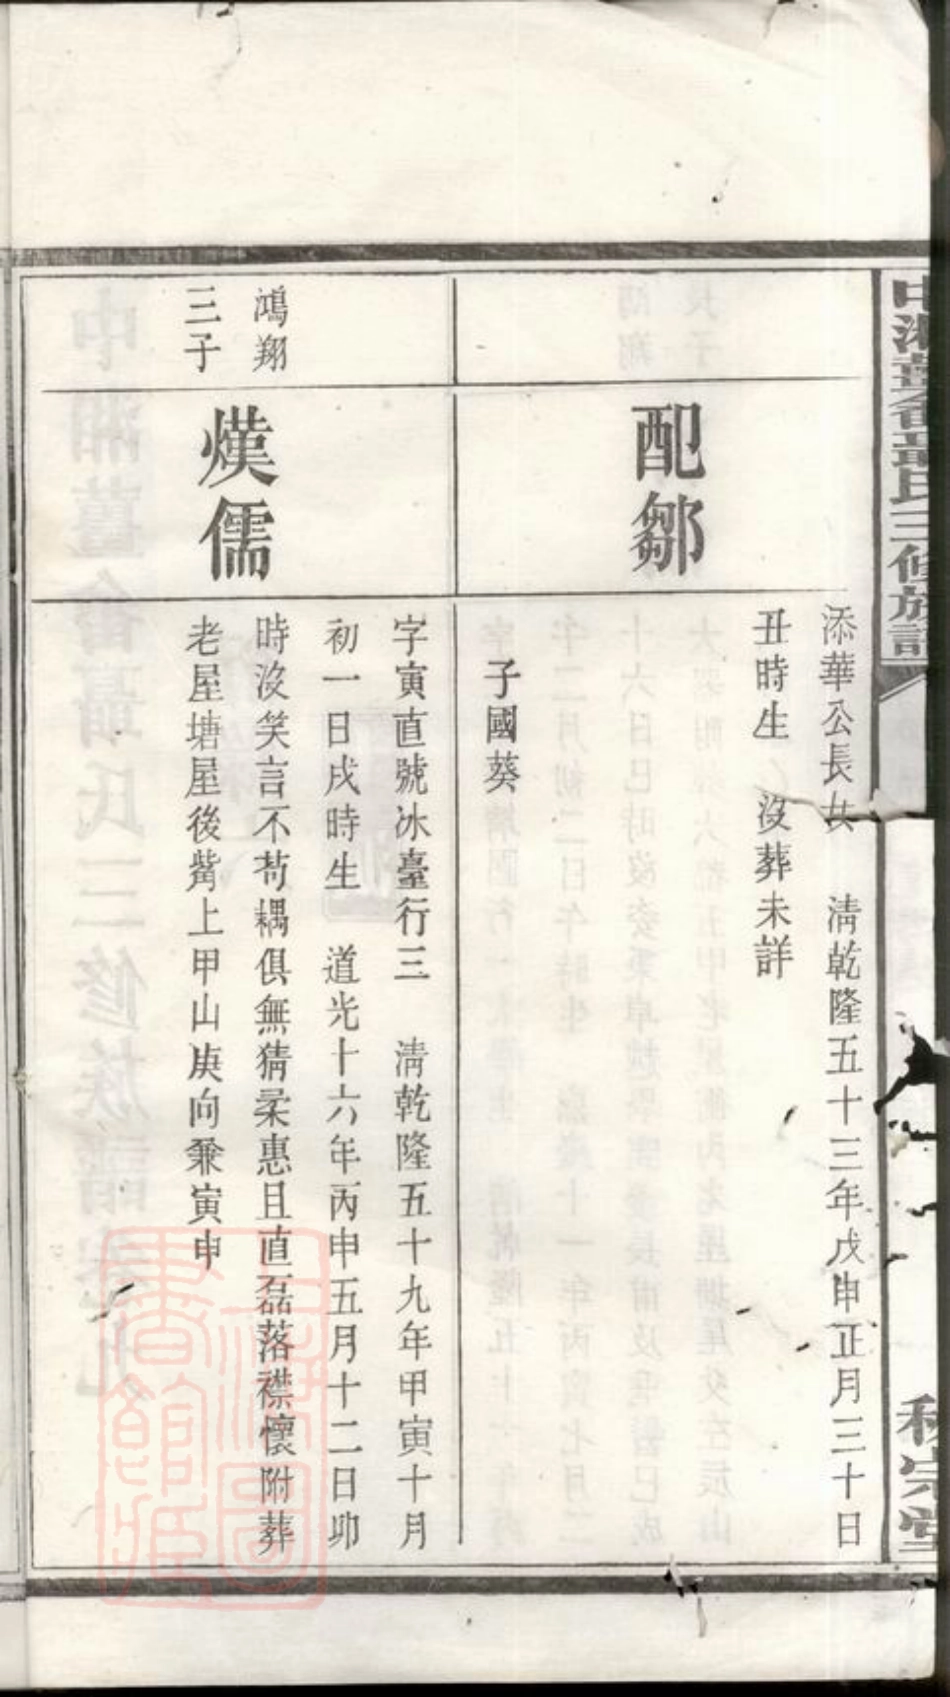 三修族譜
配鄒
添華公長女　清乾隆五十三年戊申正月三十日
丑時生　沒葬未詳
子國葵
鴻翔
三子
熯儒
字寅直號冰臺行三　清乾隆五十九年甲寅十月
初一日戌時生　道光十六年丙申五月十二日卯
時沒笑言不苟耦俱無猜柔惠且直磊落襟懷附葬
老屋塘屋後觜上甲山庚向兼寅申